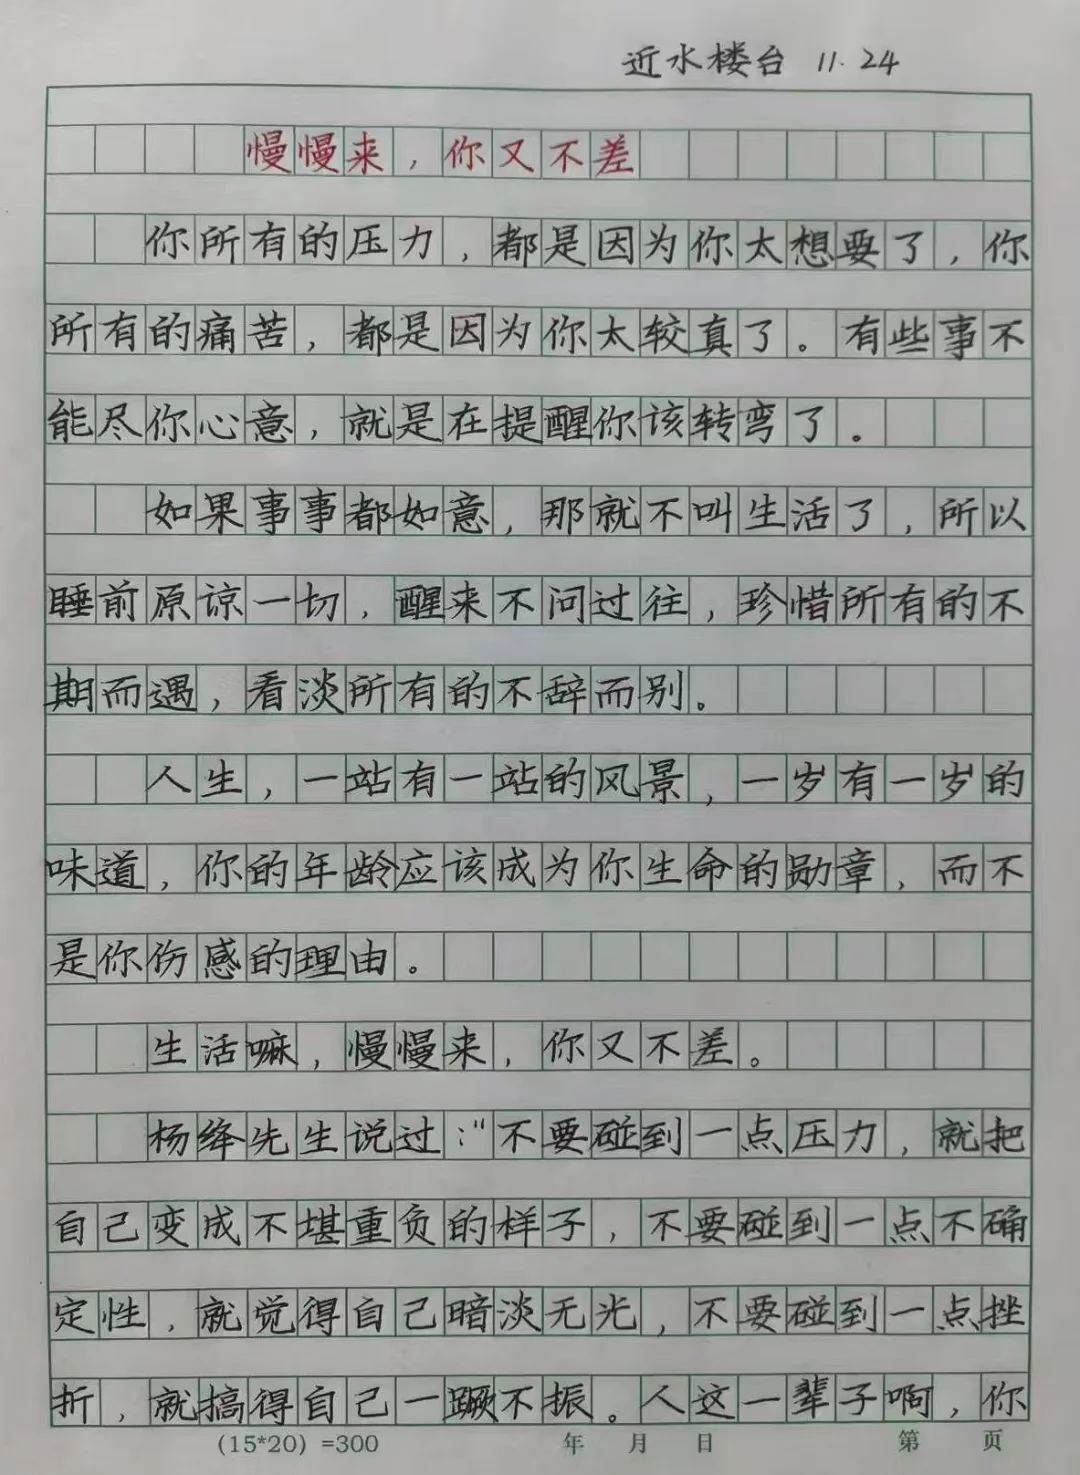 近水楼台 11.24
慢慢来，你又不差
你所有的压力，都是因为你太想要了，你
所有的痛苦，都是因为你太较真了。有些事不
能尽你心意，就是在提醒你该转弯了。
如果事事都如意，那就不叫生活了，所以
睡前原谅一切，醒来不问过往，珍惜所有的不
期而遇，看淡所有的不辞而别。
人生，一站有一站的风景，一岁有一岁的
味道，你的年龄应该成为你生命的勋章，而不
是你伤感的理由。
生活嘛，慢慢来，你又不差。
杨绛先生说过："不要碰到一点压力，就把
自己变成不堪重负的样子，不要碰到一点不确
定性，就觉得自己暗淡无光，不要碰到一点挫
折，就搞得自己一蹶不振。人这一辈子啊，你
(15*20)=300 年 月 日 第 页